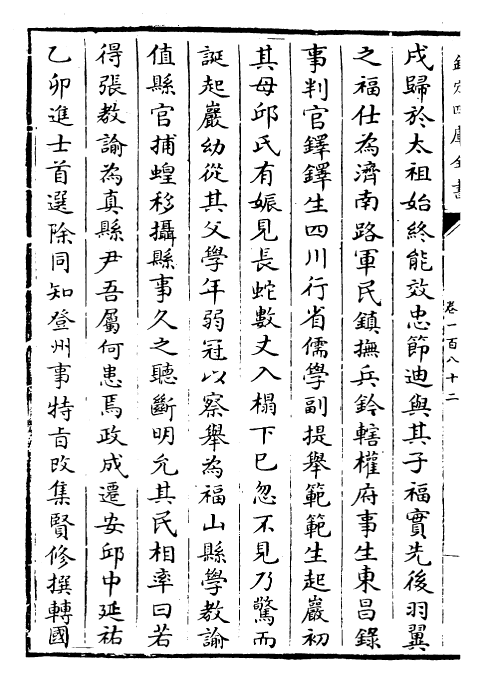 欽定四庫全書
卷一百八十二
戌歸於太祖始終能效忠節迪與其子福實先後羽翼
之福仕為濟南路軍民鎮撫兵鈐轄權府事生東昌錄
事判官鐸鐸生四川行省儒學副提舉範範生起巖初
其母邱氏有娠見長蛇數丈入榻下已忽不見乃驚而
誕起巖幼從其父學年弱冠以察舉為福山縣學教諭
值縣官捕蝗移攝縣事久之聽斷明允其民相率曰若
得張教諭為真縣尹吾屬何患焉政成遷安邱中延祐
乙卯進士首選除同知登州事特旨改集賢修撰轉國